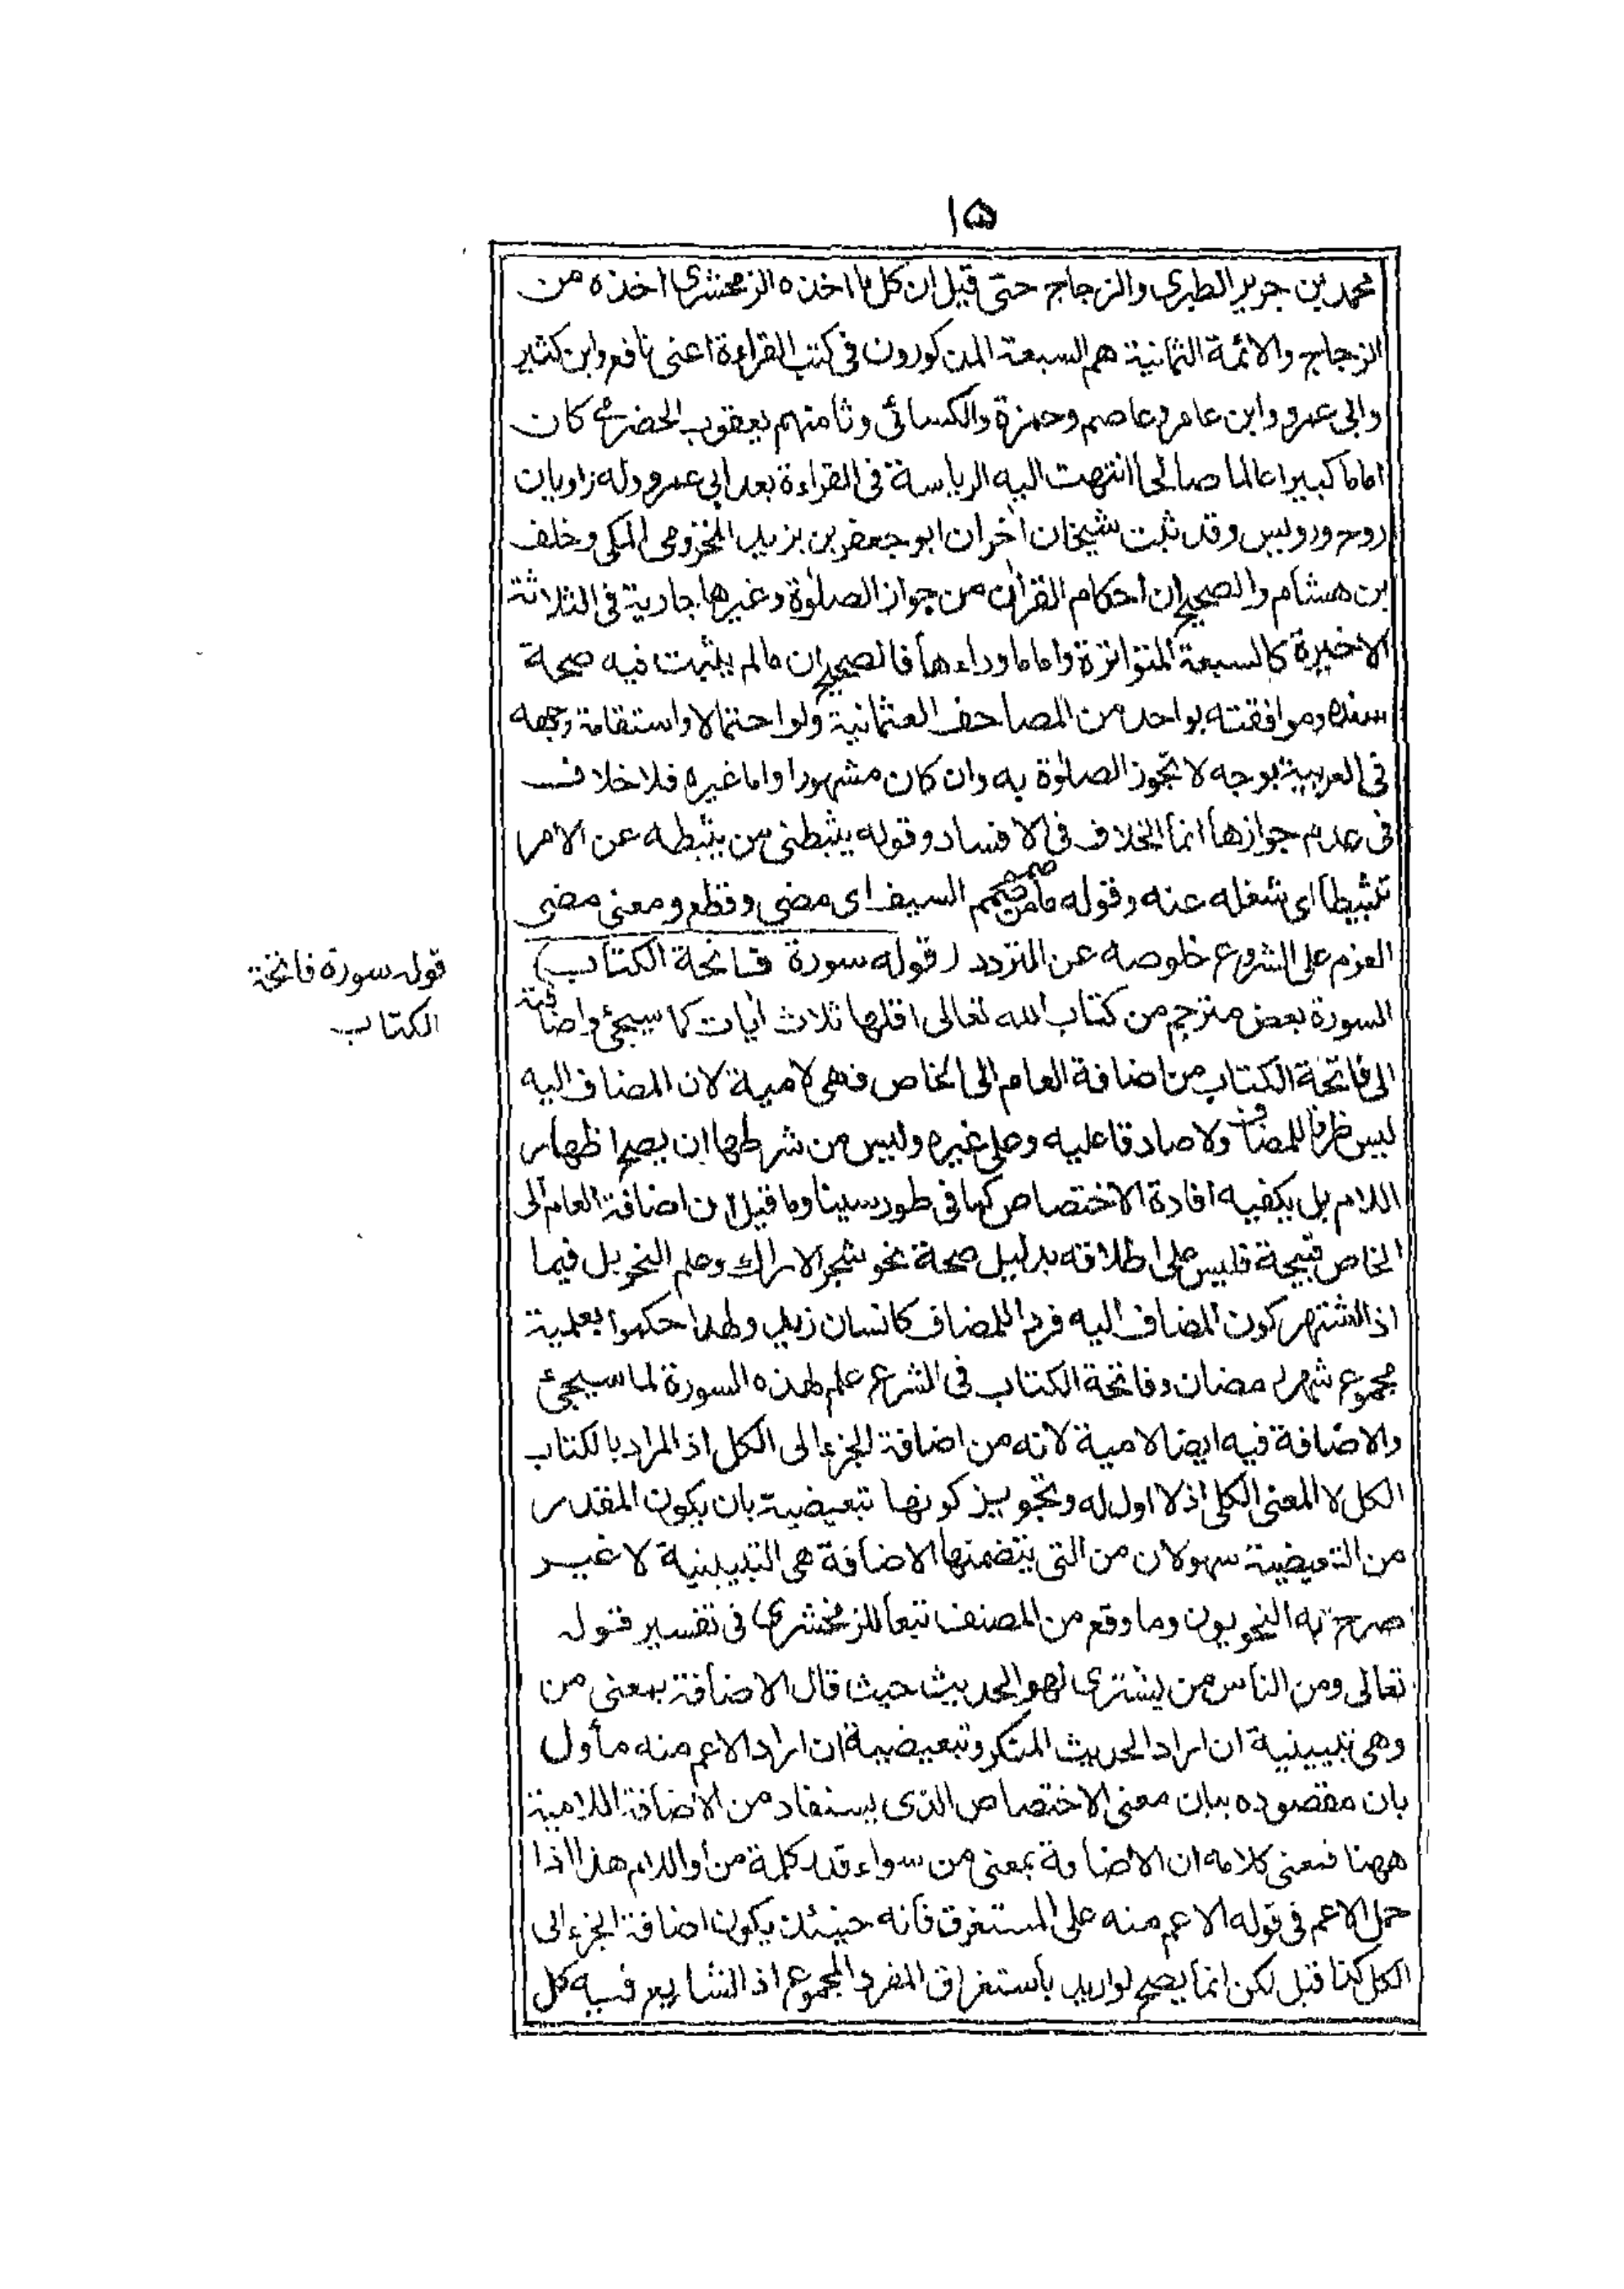 ١٥
محمد بن جرير الطبرى والزجاج حتى قيل ان كل ما اخذه الزمخشرى اخذه من
الزجاج والائمة الثمانية هم السبعة المذكورون فى كتب القراءة اعنى نافع وابن كثير
وابى عمرو وابن عامر وعاصم وحمزة والكسائى وثامنهم يعقوب الحضرمى كان
اماما كبيرا عالما صالحا انتهت اليه الرياسة فى القراءة بعد ابى عمرو وله راويان
روح ورويس وقد ثبت شيخان اٰخران ابو جعفر بن يزيد المخزومى المكى وخلف
بن هشام والصحيح ان احكام القراٰن من جواز الصلوٰة وغيرها جارية فى الثلاثة
الاخيرة كالسبعة المتواترة واما ما وراءها فالصحيح ان ما لم يثبت فيه صحة
سنده وموافقته بواحد من المصاحف العثمانية ولو احتمالا واستقامة وجهه
فى العربية بوجه لا تجوز الصلوٰة به وان كان مشهورا واما غيره فلا خلاف
فى عدم جوازها انما الخلاف فى الافساد وقوله يثبطنى من يثبطه عن الامر
تثبيطا اى شغله عنه وقوله ما من صمم السيف اى مضى وقطع ومعنى مضى
العزم على الشروع خلوصه عن التردد (قوله سورة فاتحة الكتاب)
السورة بعض مترجم من كتاب الله تعالى اقلها ثلاث اٰيات كما سيجئ واضافة
الى فاتحة الكتاب من اضافة العام الى الخاص فهى لامية لان المضاف اليه
ليس ظرفا للمضاف ولا صادقا عليه وعلى غيره وليس من شرطها ان يصح اظهار
اللام بل يكفيه افادة الاختصاص كما فى طور سينا وما قيل ان اضافة العام الى
الخاص قبيحة فليس على اطلاقه بدليل صحة نحو شجر الاراك وعلم النحو بل فيما
اذا اشتهر كون المضاف اليه فردا للمضاف كانسان زيد ولهذا حكموا بعلمية
مجموع شهر رمضان وفاتحة الكتاب فى الشرع علم لهذه السورة لما سيجئ
والاضافة فيه ايضا لامية لانه من اضافة الجزء الى الكل اذ المراد بالكتاب
الكل لا المعنى الكلى اذ لا اول له وتجويز كونها تبعيضية بان يكون المقدر
من التبعيضية سهو لان من التى يتضمنها الاضافة هى التبيينية لا غير
صرح به النحويون وما وقع من المصنف تبعا للزمخشرى فى تفسير قوله
تعالى ومن الناس من يشترى لهو الحديث حيث قال الاضافة بمعنى من
وهى تبيينية ان اراد الحديث المنكر وتبعيضية ان اراد الاعم منه مأول
بان مقصوده بيان معنى الاختصاص الذى يستفاد من الاضافة اللامية
ههنا فمعنى كلامه ان الاضافة بمعنى من سواء قدر كلمة من أو اللام هذا اذا
حمل الاعم فى قوله الاعم منه على المستغرق فانه حينئذ يكون اضافة الجزء الى
الكل كذا قيل لكن انما يصح لو اريد باستغراق المفرد المجموع اذ الشايع فيه كل
قوله سورة فاتحة
الكتاب